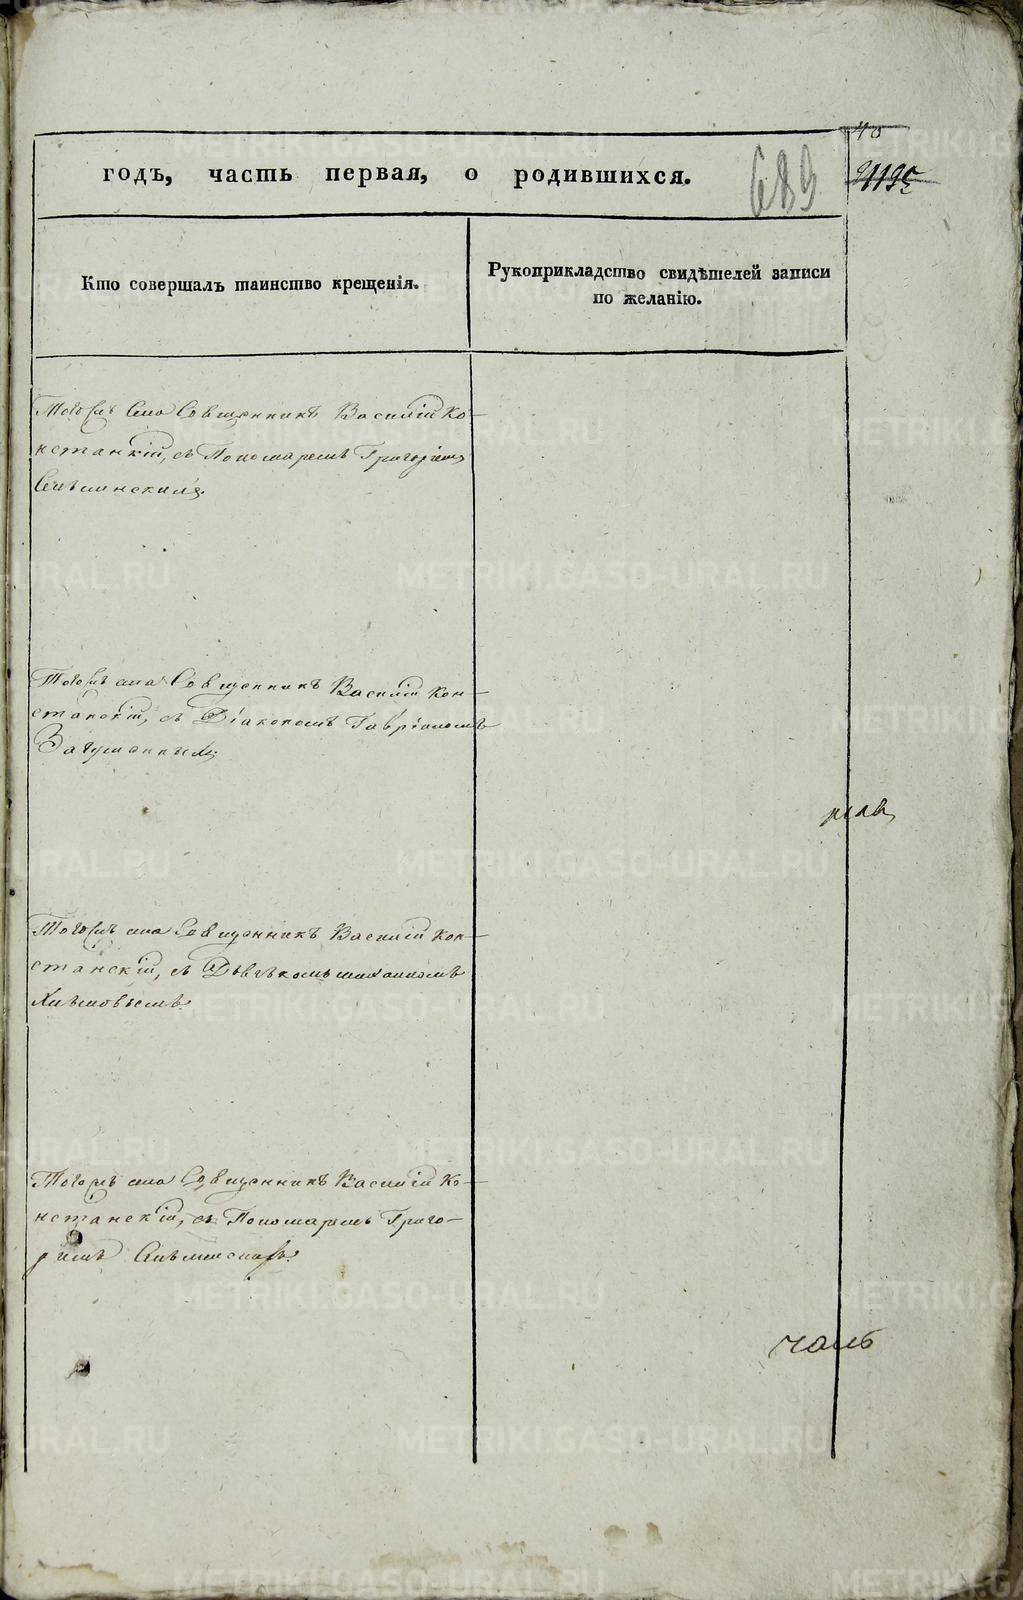 40
годъ, часть первая, о родившихся.
689
Кто совершалъ таинство крещенія.
Рукоприкладство свидѣтелей записи
по желанію.
Тогожъ села Священникъ Василій Ко-
нстанскій, съ Пономаремъ Григоріемъ
Тогожъ села Священникъ Василій Кон-
станскій, съ Діакономъ Гавріиломъ
Тогожъ села Священникъ Василій Кон-
станскій, съ Дьячкомъ Михаиломъ
Тогожъ села Священникъ Василій Ко-
нстанскій, съ Пономаремъ Григо-
ріемъ
METRIKI.GASO-URAL.RU